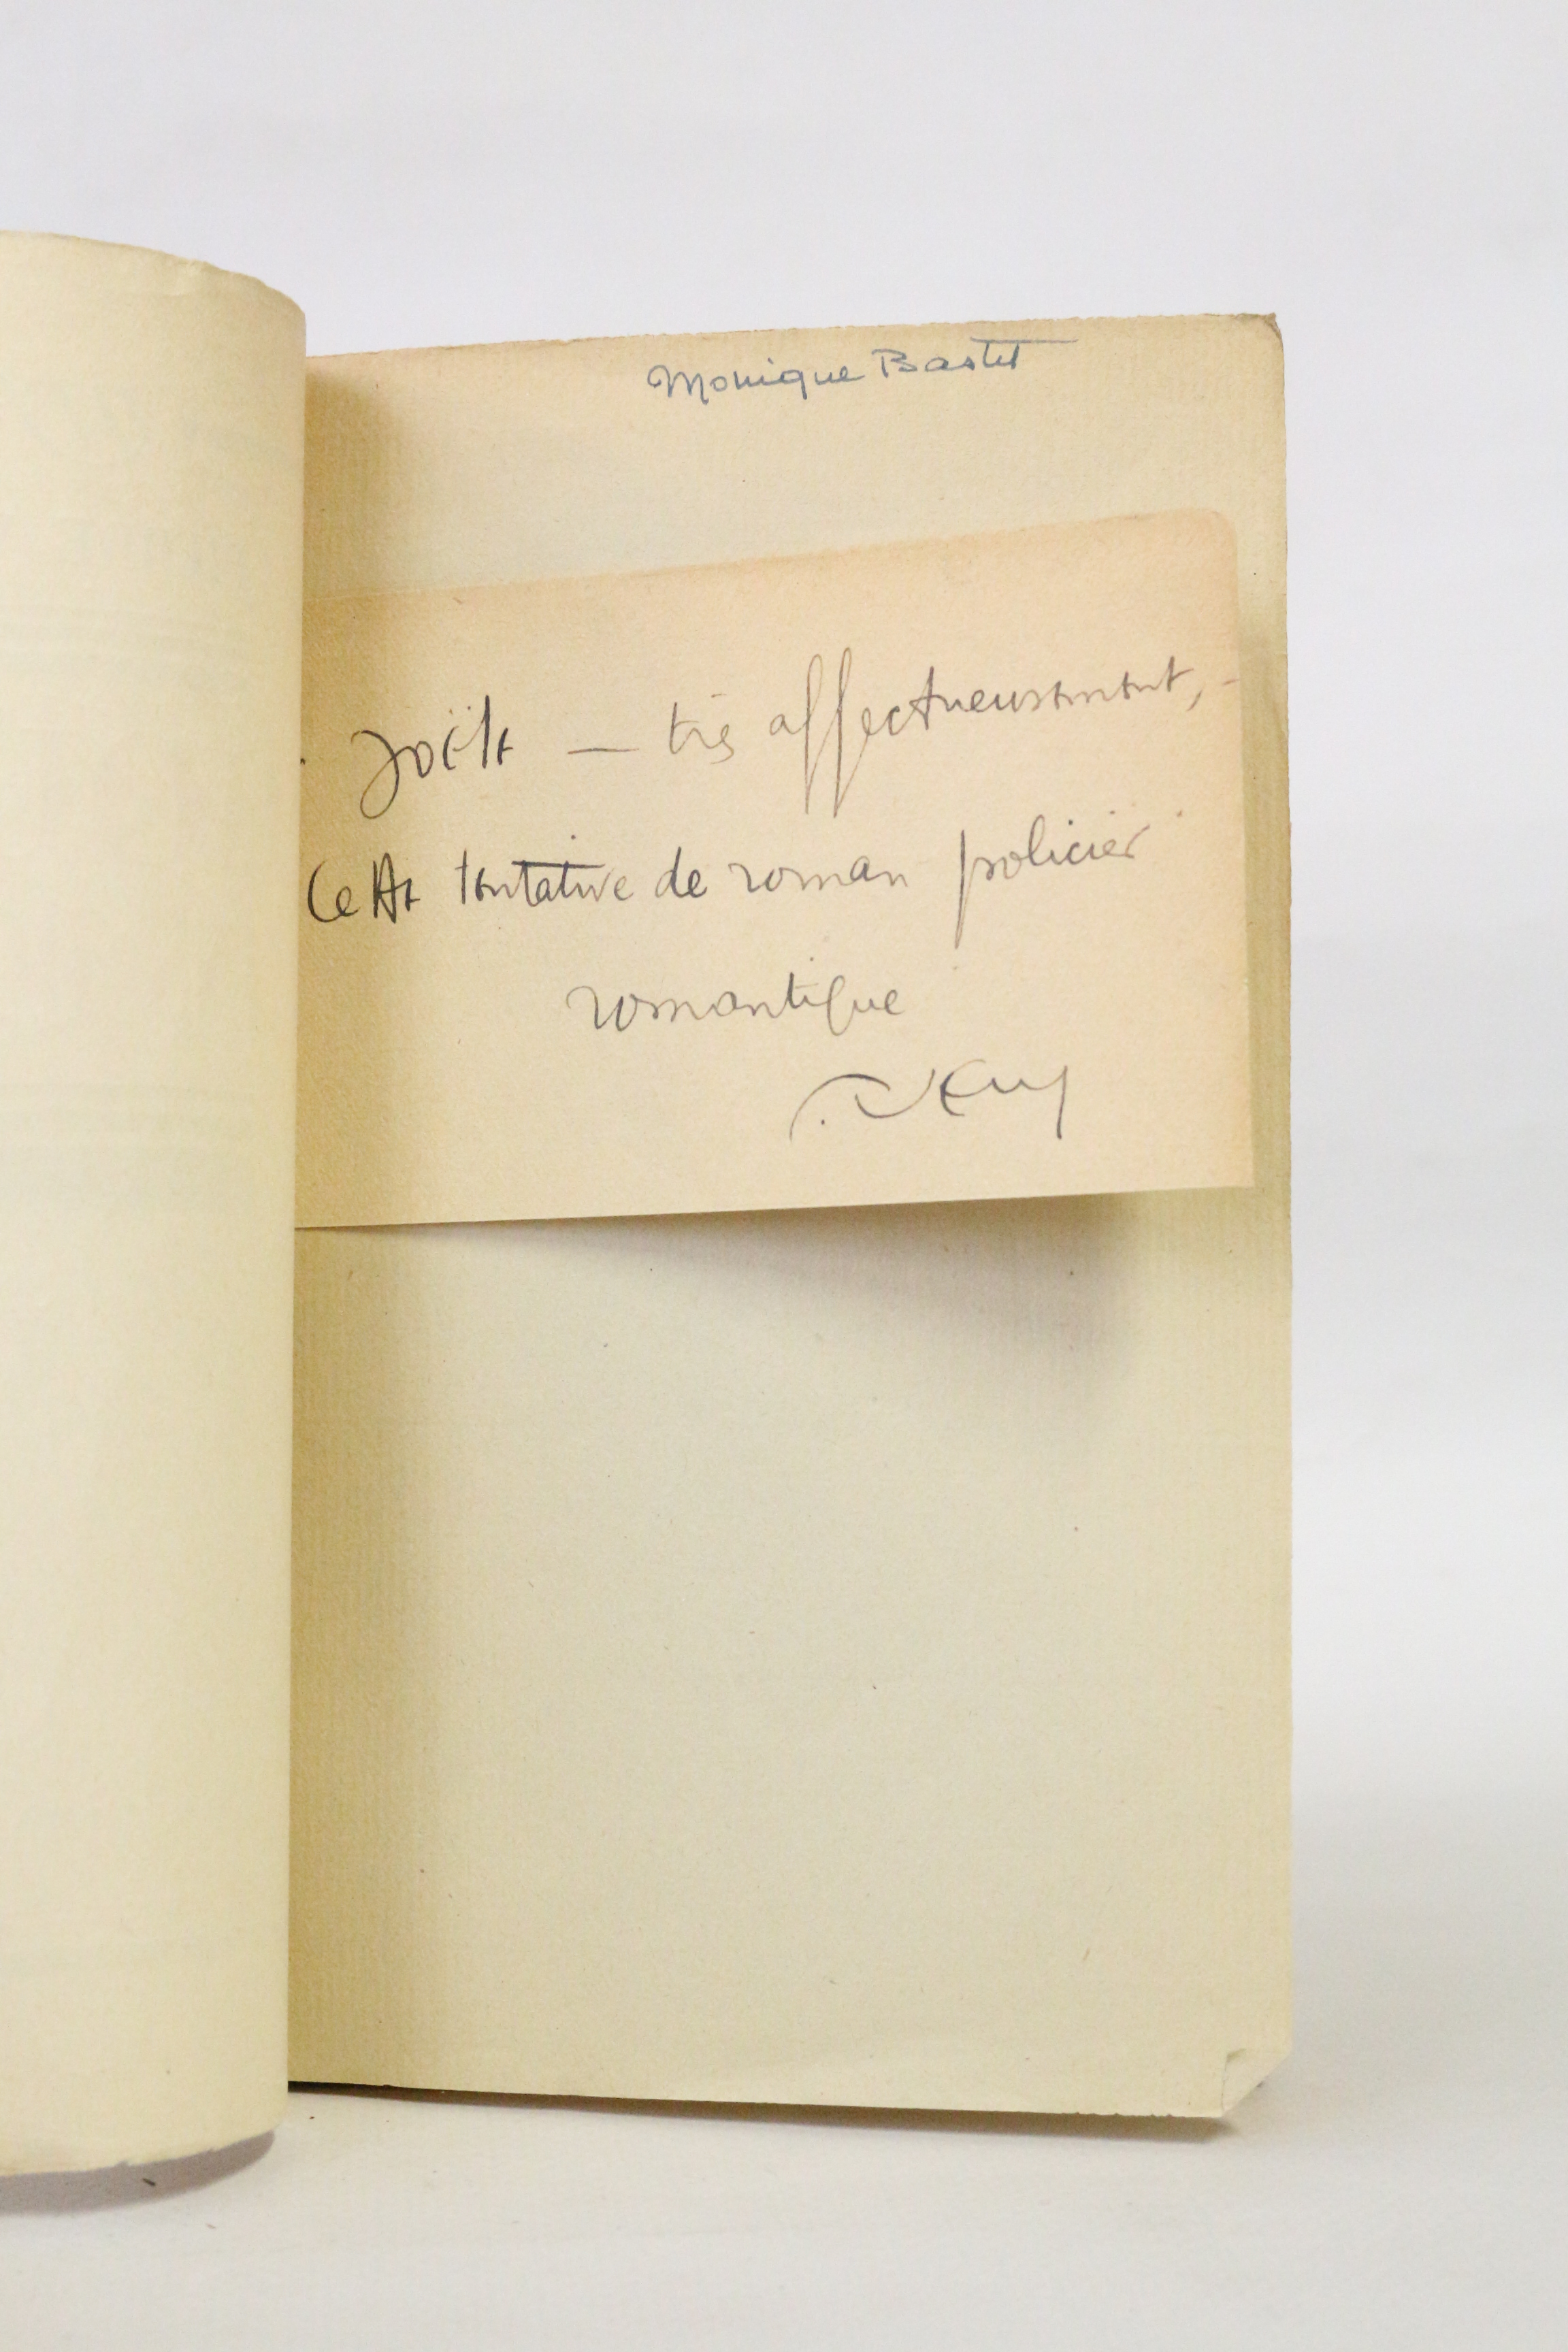 Monique Bastet
Joëlle — très affectueusement, -
Cette tentative de roman policier
romantique